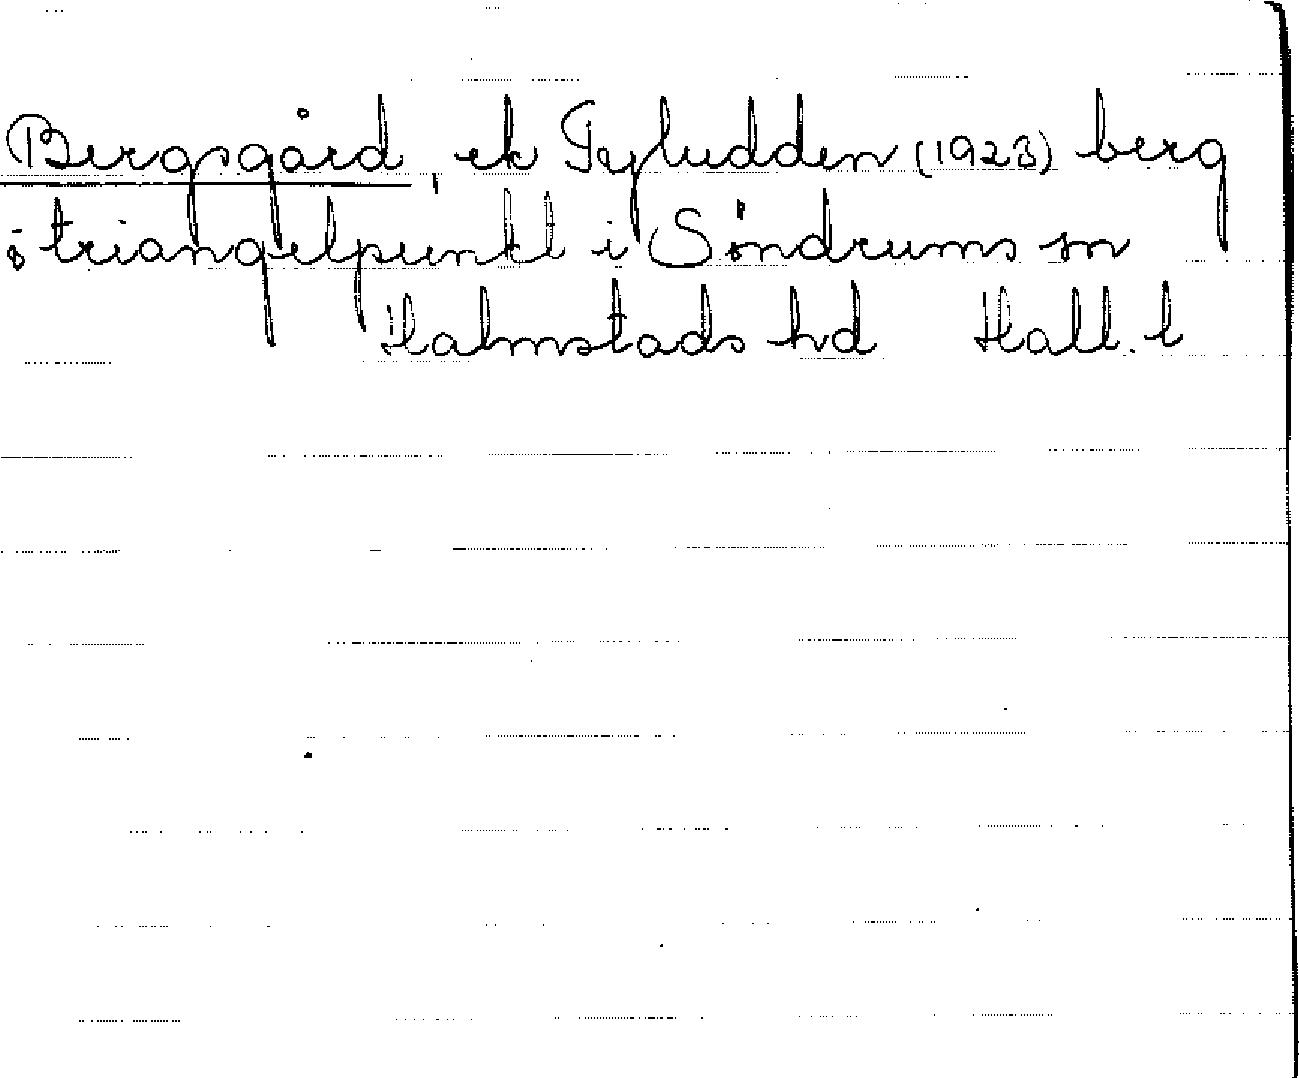 Bergsgård, ek Tyludden (1923) berg
å triangelpunkt i Söndrums sn
Halmstads hd Hall. l